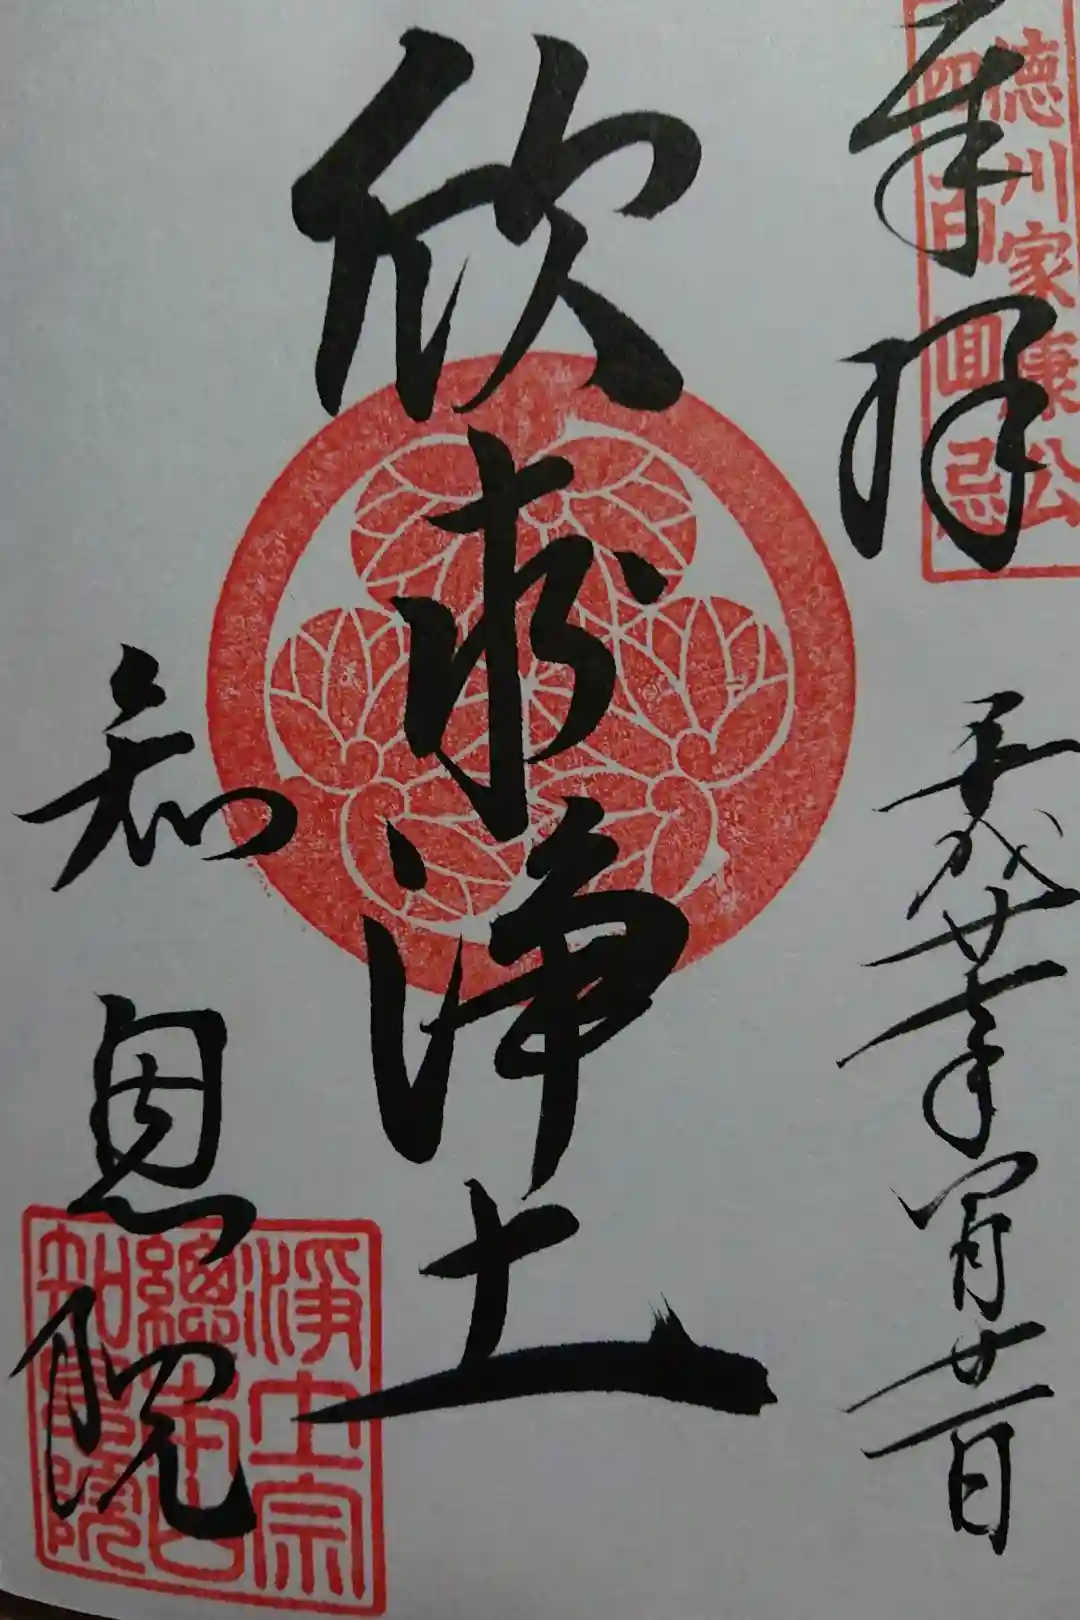 奉拝
徳川家康公
四百回忌
平成廿七年月廿一日
欣求浄土
知恩院
淨土宗
總本山
知恩院